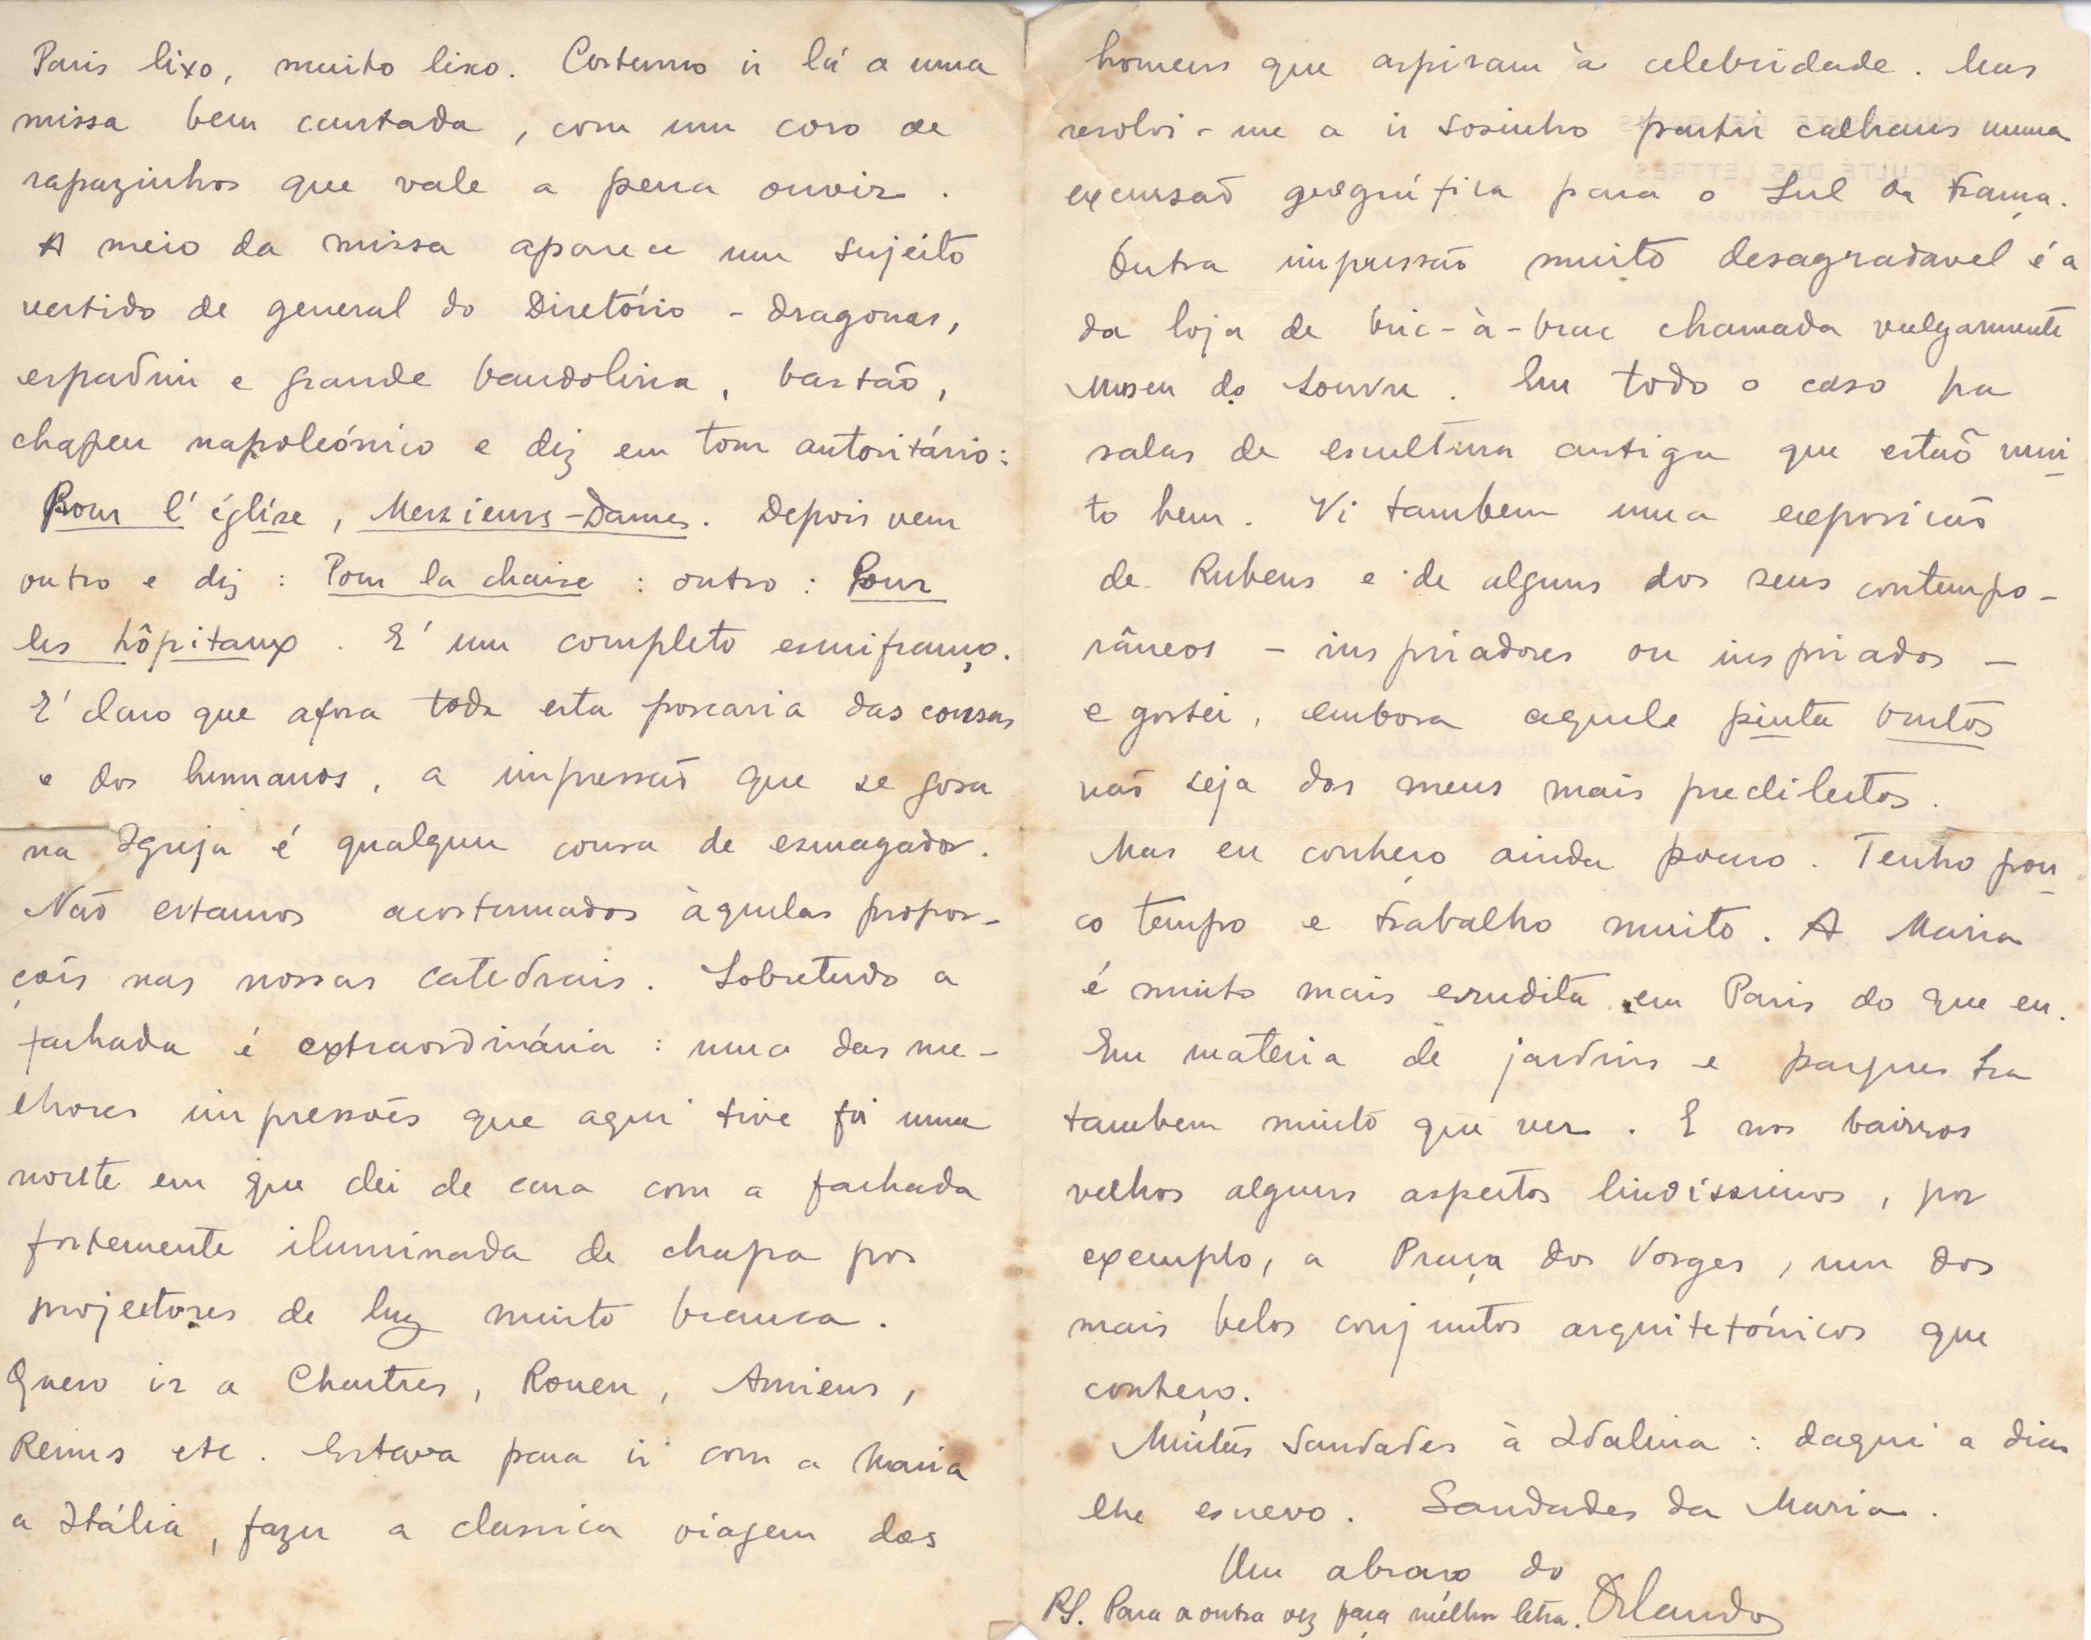 Paris lixo, muito lixo. Costumo ir lá a uma
missa bem cantada, com um coro de
rapazinhos que vale a pena ouvir.
A meio da missa aparece um sujeito
vestido de general do Diretório - dragonas,
espadim e grande bandolina, bastão,
chapeu napoleónico e diz em tom autoritário:
Pour l'église, Messieurs-Dames. Depois vem
outro e diz: Pour la chaise: outro: Pour
les hôpitaux. E' um completo esmifranço.
E' claro que afora toda esta porcaria das cousas
e dos humanos, a impressão que se gosa
na Igreja é qualquer cousa de esmagador.
Não estamos acostumados àquelas propor-
ções nas nossas catedrais. Sobretudo a
fachada é extraordinária: uma das me-
lhores impressões que aqui tive foi uma
noite em que dei de cara com a fachada
fortemente iluminada de chapa por
projectores de luz muito branca.
Quero ir a Chartres, Rouen, Amiens,
Reims etc. Estava para ir com a Maria
a Itália, fazer a classica viagem dos
homens que aspiram à celebridade. Mas
resolvi-me a ir sosinho partir calhaus numa
excursão geográfica para o Sul da França.
Outra impressão muito desagradavel é a
da loja de bric-à-brac chamada vulgarmente
Museu do Louvre. Em todo o caso ha
salas de escultura antiga que estão mui-
to bem. Vi tambem uma exposição
de Rubens e de alguns dos seus contempo-
râneos - inspiradores ou inspirados -
e gostei, embora aquele pinta
não seja dos meus mais predilectos.
Mas eu conheço ainda pouco. Tenho pou-
co tempo e trabalho muito. A Maria
é muito mais erudita em Paris do que eu.
Em materia de jardins e parques ha
tambem muito que ver. E nos bairros
velhos alguns aspectos lindíssimos, por
exemplo, a Praça dos Vosges, um dos
mais belos conjuntos arquitetónicos que
conheço.
Muitas saudades à Idalina: daqui a dias
lhe escrevo. Saudades da Maria.
Um abraço do
PS. Para a outra vez faça melhor letra. Orlando